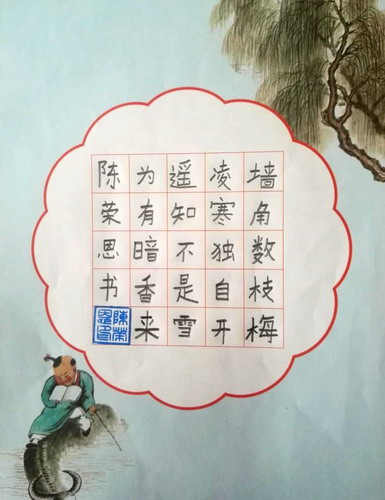 墙角数枝梅
凌寒独自开
遥知不是雪
为有暗香来
陈荣思书
陈荣